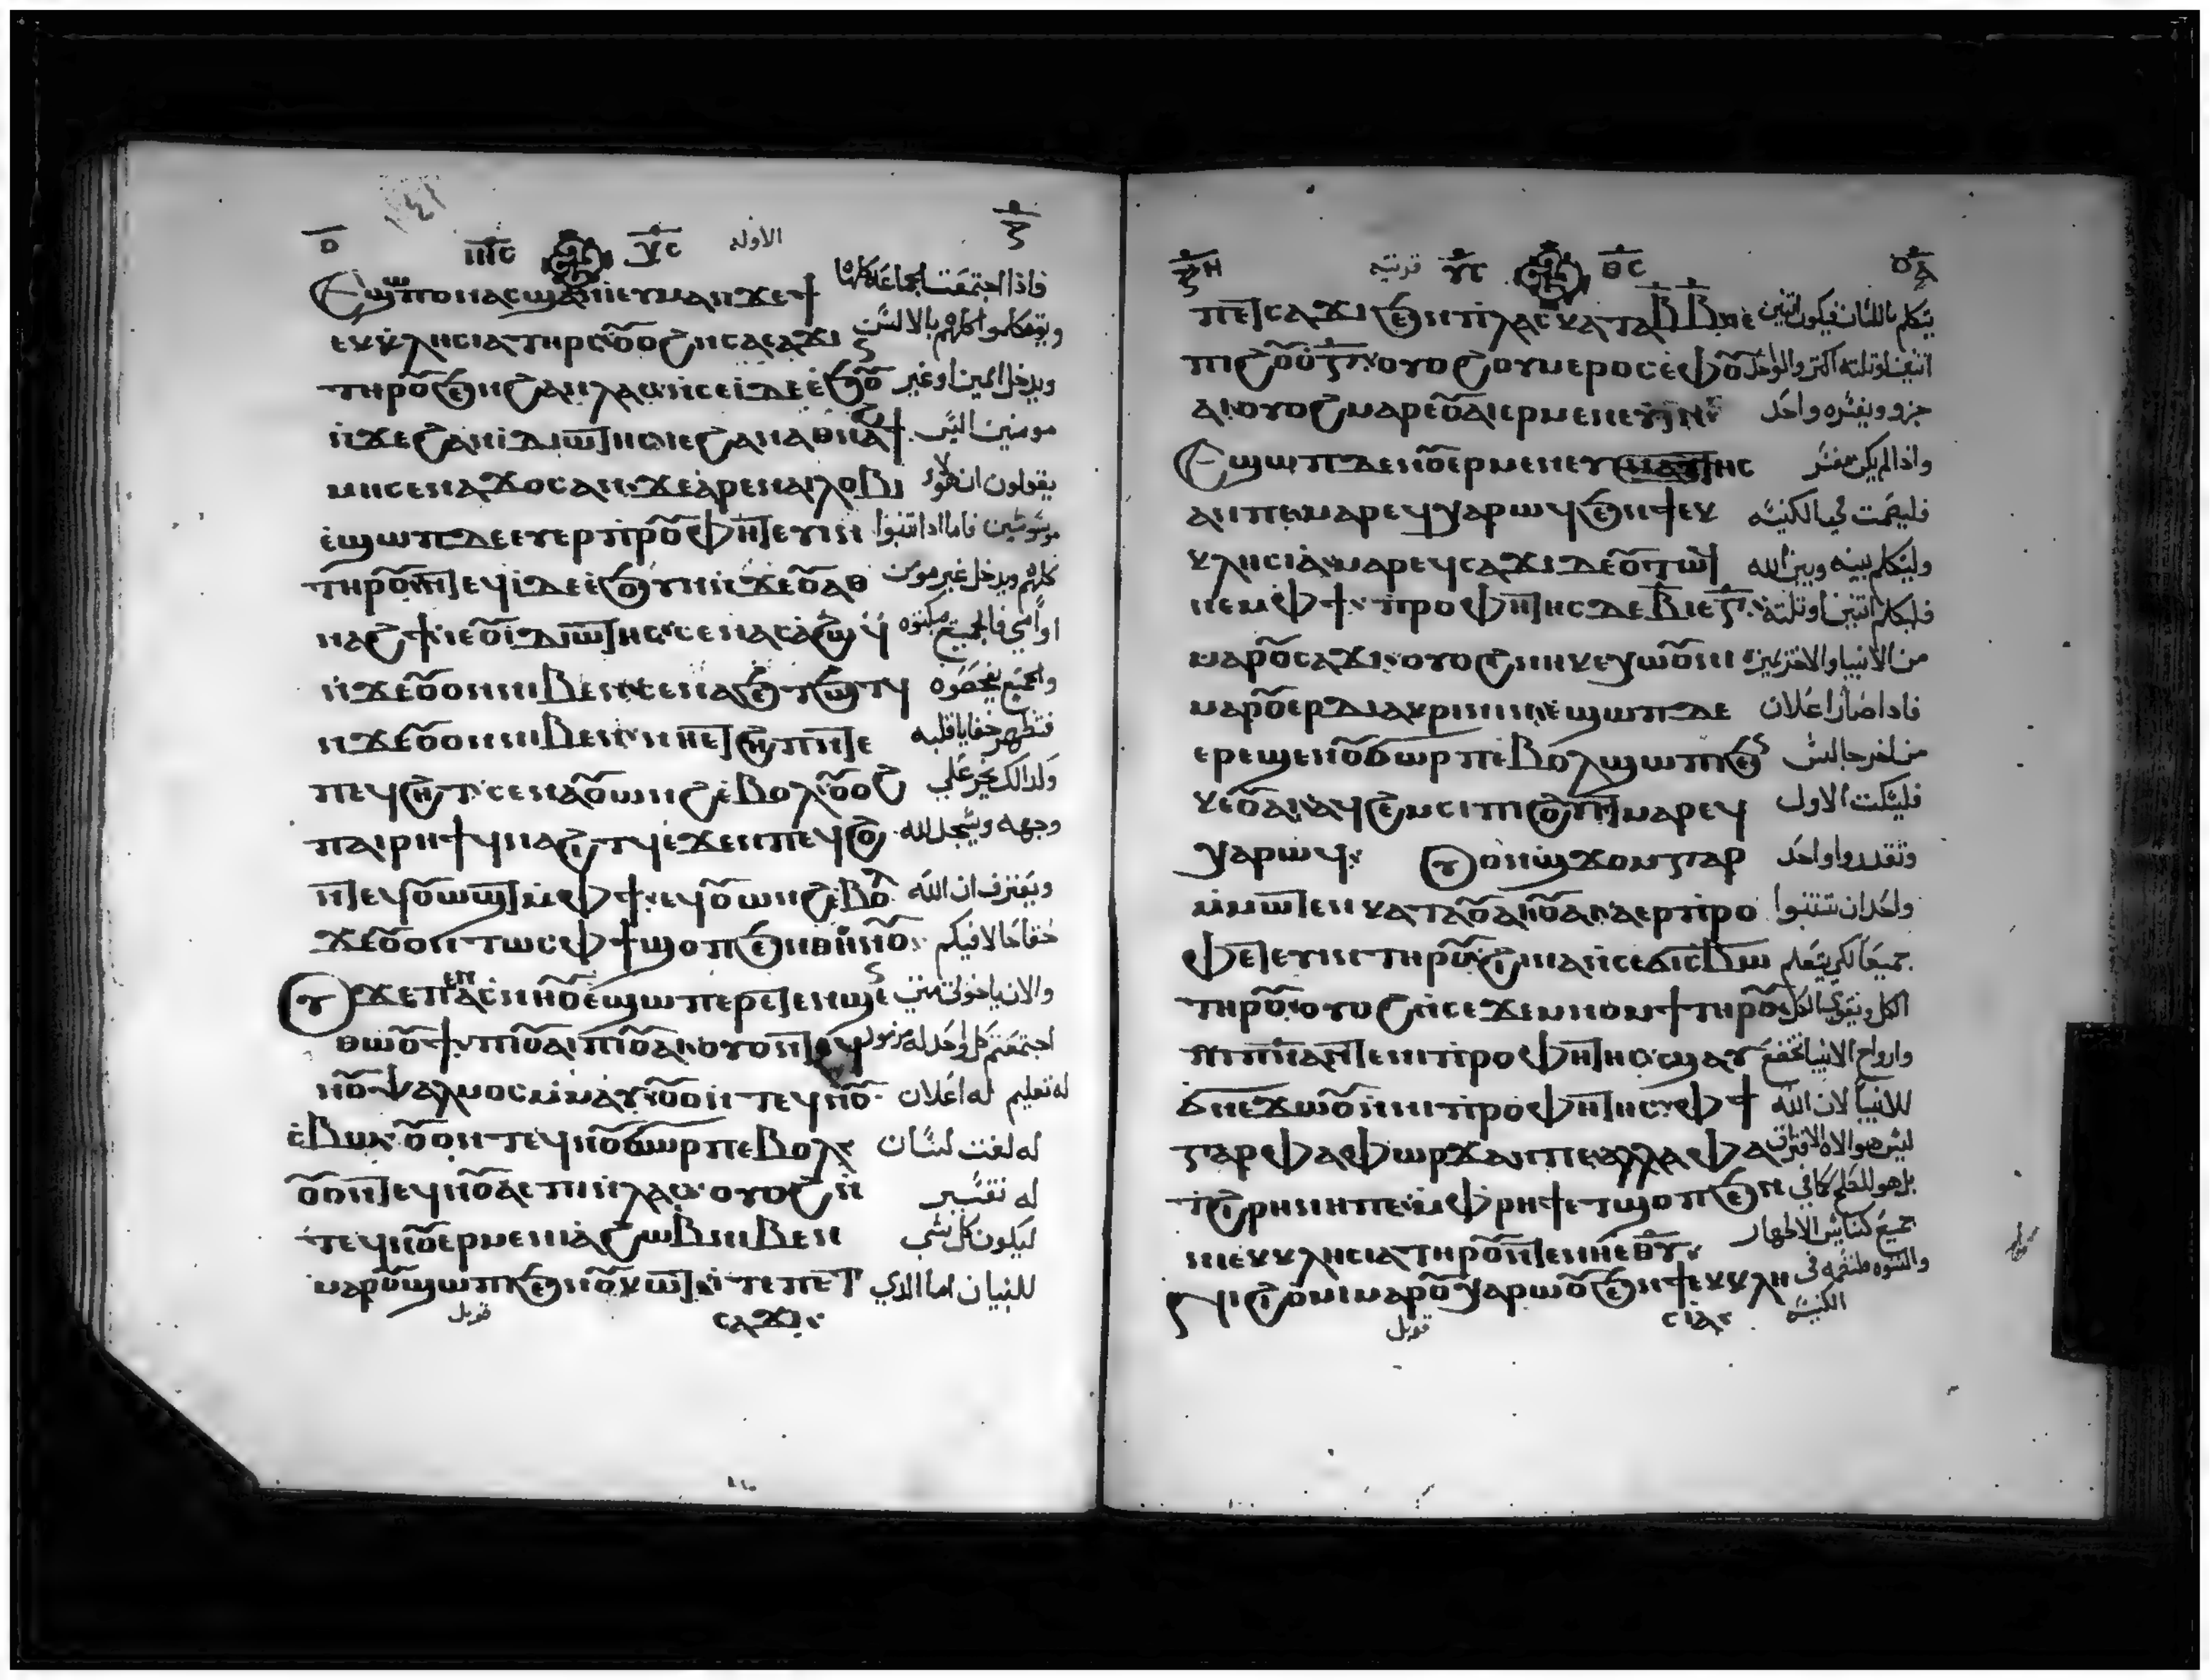 الأولة
Ⲉϣⲱⲡ ⲟⲛ ⲁⲥϣⲁⲛⲓ ⲉⲩⲙⲁ ⲛϫⲉϯ فاذا اجتمعت الجماعة كلها
ⲉⲕⲕⲗⲏⲥⲓⲁ ⲧⲏⲣⲥ ⲟⲩⲟϩ ⲛⲥⲉⲥⲁϫⲓ ويتكلموا كلهم بالالسن
ⲧⲏⲣⲟⲩ ϧⲉⲛ ϩⲁⲛⲗⲁⲥ ⲛⲥⲉⲓ ⲇⲉ ⲉϧⲟⲩ ويدخل اميين او غير
ⲛϫⲉ ϩⲁⲛⲓⲇⲓⲱⲧⲏⲥ ⲓⲉ ϩⲁⲛⲁⲑⲛⲁϩϯ مومنين اليس
ⲙⲏ ⲥⲉⲛⲁϫⲟⲥ ⲁⲛ ϫⲉ ⲁⲣⲉⲛⲁⲓⲗⲟⲃⲓ يقولون ان هولاء
ⲉϣⲱⲡ ⲇⲉ ⲉⲩⲉⲣⲡⲣⲟⲫⲏⲧⲉⲩⲓⲛ فاما اذا اتنبوا
ⲧⲏⲣⲟⲩ ⲛⲧⲉϥⲓ ⲇⲉ ⲉϧⲟⲩⲛ ⲛϫⲉ ⲟⲩⲁⲑ كلهم ويدخل غير مومن
ⲛⲁϩϯ ⲓⲉ ⲟⲩⲓⲇⲓⲱⲧⲏⲥ ⲥⲉⲛⲁⲥⲁϩⲱϥ او امي فالجميع
ⲛϫⲉ ⲟⲩⲟⲛ ⲛⲓⲃⲉⲛ ⲥⲉⲛⲁϧⲉⲧϧⲱⲧϥ والجميع
ⲛϫⲉ ⲟⲩⲟⲛ ⲛⲓⲃⲉⲛ ⲛⲏⲉⲧϩⲏⲡ ⲛⲧⲉ فتظهر خفايا قلبه
ⲡⲉϥϩⲏⲧ ⲥⲉⲛⲁⲟⲩⲱⲛϩ ⲉⲃⲟⲗ ⲟⲩⲟϩ ولذالك يخر علي
ⲡⲁⲓⲣⲏϯ ϥⲛⲁϩⲓⲧϥ ⲉϫⲉⲛ ⲡⲉϥϩⲟ وجهه ويسجد لله
ⲛⲧⲉϥⲟⲩⲱϣⲧ ⲙⲫϯ ⲉϥⲟⲩⲱⲛϩ ⲉⲃⲟⲗ ويعترف ان الله
ϫⲉ ⲟⲩⲟⲛⲧⲱⲥ ⲫϯ ϣⲟⲡ ϧⲉⲛ ⲑⲏⲛⲟⲩ حقا حالا فيكم
ⲟⲩ ϫⲉ ⲡⲉ ⲛⲁⲥⲛⲏⲟⲩ ⲉϣⲱⲡ ⲉⲣⲉⲧⲉⲛϣⲉ والان ياخوتي متي
ⲑⲱⲟⲩϯ ⲡⲓⲟⲩⲁⲓ ⲡⲓⲟⲩⲁⲓ ⲟⲩⲟⲛⲧⲉϥ اجتمعتم كل واحد له مزمور
ⲛⲟⲩⲯⲁⲗⲙⲟⲥ ⲙⲙⲁⲩ ⲟⲩⲟⲛⲧⲉϥ ⲛⲟⲩ له تعليم له اعلان
ⲥⲃⲱ ⲟⲩⲟⲛⲧⲉϥ ⲛⲟⲩϭⲱⲣⲡ ⲉⲃⲟⲗ له لغت لسان
ⲟⲩⲟⲛⲧⲉϥ ⲛⲟⲩⲁⲥⲡⲓ ⲛⲗⲁⲥ ⲟⲩⲟϩ ⲛ له تفسير
ⲧⲉϥ ⲛⲟⲩⲉⲣⲙⲉⲛⲓⲁ ϩⲱⲃ ⲛⲓⲃⲉⲛ ليكون كل شي
ⲙⲁⲣⲟⲩϣⲱⲡⲓ ϧⲉⲛ ⲟⲩⲕⲱⲧ ⲓⲧⲉ ⲡⲉⲧ للبنيان اما الذي
ⲥⲁϫⲓ
قوبل
قرنتيه
ⲡⲉⲧⲥⲁϫⲓ ϧⲉⲛ ⲡⲓⲗⲁⲥ ⲕⲁⲧⲁ Ⲃ Ⲃ ⲓⲉ يتكلم باللسان فيكون اثنين
ⲡⲓϩⲟⲩⲟ Ⲅ ⲟⲩⲟϩ ⲟⲩⲙⲉⲣⲟⲥ ⲉⲫⲟⲩ اثنين او ثلثه اكثر والواحد
ⲁⲓ ⲟⲩⲟϩ ⲙⲁⲣⲉ ⲟⲩⲁⲓ ⲉⲣⲙⲉⲛⲉⲩⲓⲛ جزو ويفسره واحد
Ⲉϣⲱⲡ ⲇⲉ ⲛⲟⲩⲉⲣⲙⲉⲛⲉⲩⲧⲏⲥ واذا لم يكن مفسر
ⲁⲛ ⲡⲉ ⲙⲁⲣⲉϥⲭⲁⲣⲱϥ ϧⲉⲛ ϯⲉⲕ فليصمت في الكنيسه
ⲕⲗⲏⲥⲓⲁ ⲙⲁⲣⲉϥⲥⲁϫⲓ ⲇⲉ ⲟⲩⲧⲱϥ وليتكلم بينه وبين الله
ⲛⲉⲙ ⲫϯ ⲡⲣⲟⲫⲏⲧⲏⲥ ⲇⲉ Ⲃ ⲓⲉ Ⲅ فليتكلم اثنين او ثلثه
ⲙⲁⲣⲟⲩⲥⲁϫⲓ ⲟⲩⲟϩ ⲛⲓⲕⲉⲭⲱⲟⲩⲛⲓ من الانبيا والاخر
ⲙⲁⲣⲟⲩⲉⲣⲇⲓⲁⲕⲣⲓⲛⲓⲛ ⲉϣⲱⲡ ⲇⲉ فاذا صار اعلان
ⲉⲣⲉϣⲉⲛ ⲟⲩϭⲱⲣⲡ ⲉⲃⲟⲗ ϣⲱⲡⲓ ϧⲉⲛ من اخر جالس
ⲕⲉⲟⲩⲁⲓ ⲁϥϩⲉⲙⲥⲓ ⲡⲓϩⲟⲩⲓⲧ ⲙⲁⲣⲉϥ فليسكت الاول
ⲭⲁⲣⲱϥ ⲟⲩⲟⲛϣϫⲟⲙ ⲅⲁⲣ وتقدروا واحد
ⲙⲙⲱⲧⲉⲛ ⲕⲁⲧⲁ ⲟⲩⲁⲓ ⲟⲩⲁⲓ ⲁⲉⲣⲡⲣⲟ واحد ان تتنبوا
ⲫⲏⲧⲉⲩⲓⲛ ⲧⲏⲣⲟⲩ ϩⲓⲛⲁ ⲛⲥⲉϭⲓⲥⲃⲱ جميعا لكي يتعلم
ⲧⲏⲣⲟⲩ ⲟⲩⲟϩ ⲛⲥⲉϫⲉⲙⲛⲟⲙϯ ⲧⲏⲣⲟⲩ الكل ويتعزي الكل
ⲛⲓⲡⲛⲁ ⲛⲧⲉ ⲛⲓⲡⲣⲟⲫⲏⲧⲏⲥ ϣⲁⲩ وارواح الانبيا تخضع
ϭⲛⲉϫⲱⲟⲩ ⲛⲛⲓⲡⲣⲟⲫⲏⲧⲏⲥ ⲫϯ للانبيا لان الله
ⲅⲁⲣ ⲫⲁ ⲫⲱⲣϫ ⲁⲛ ⲡⲉ ⲁⲗⲗⲁ ⲫⲁ ليس هو الاه الافتراق
ⲧϩⲓⲣⲏⲛⲏ ⲡⲉ ⲙⲫⲣⲏϯ ⲉⲧϣⲟⲡ ϧⲉⲛ بل هو كما في
ⲛⲓⲉⲕⲕⲗⲏⲥⲓⲁ ⲧⲏⲣⲟⲩ ⲛⲧⲉ ⲛⲏⲉⲑⲩ جميع كنايس الاطهار
ⲛⲓϩⲓⲟⲙⲓ ⲙⲁⲣⲟⲩⲭⲁⲣⲱⲟⲩ ϧⲉⲛ ϯⲉⲕⲕⲗⲏ والنسوه في
ⲥⲓⲁ الكنيسه
قوبل